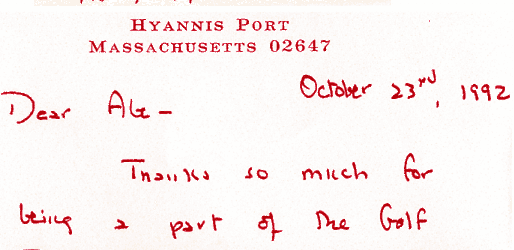 HYANNIS PORT
MASSACHUSETTS 02647
October 23rd, 1992
Dear Abe -
Thanks so much for
being a part of the Golf